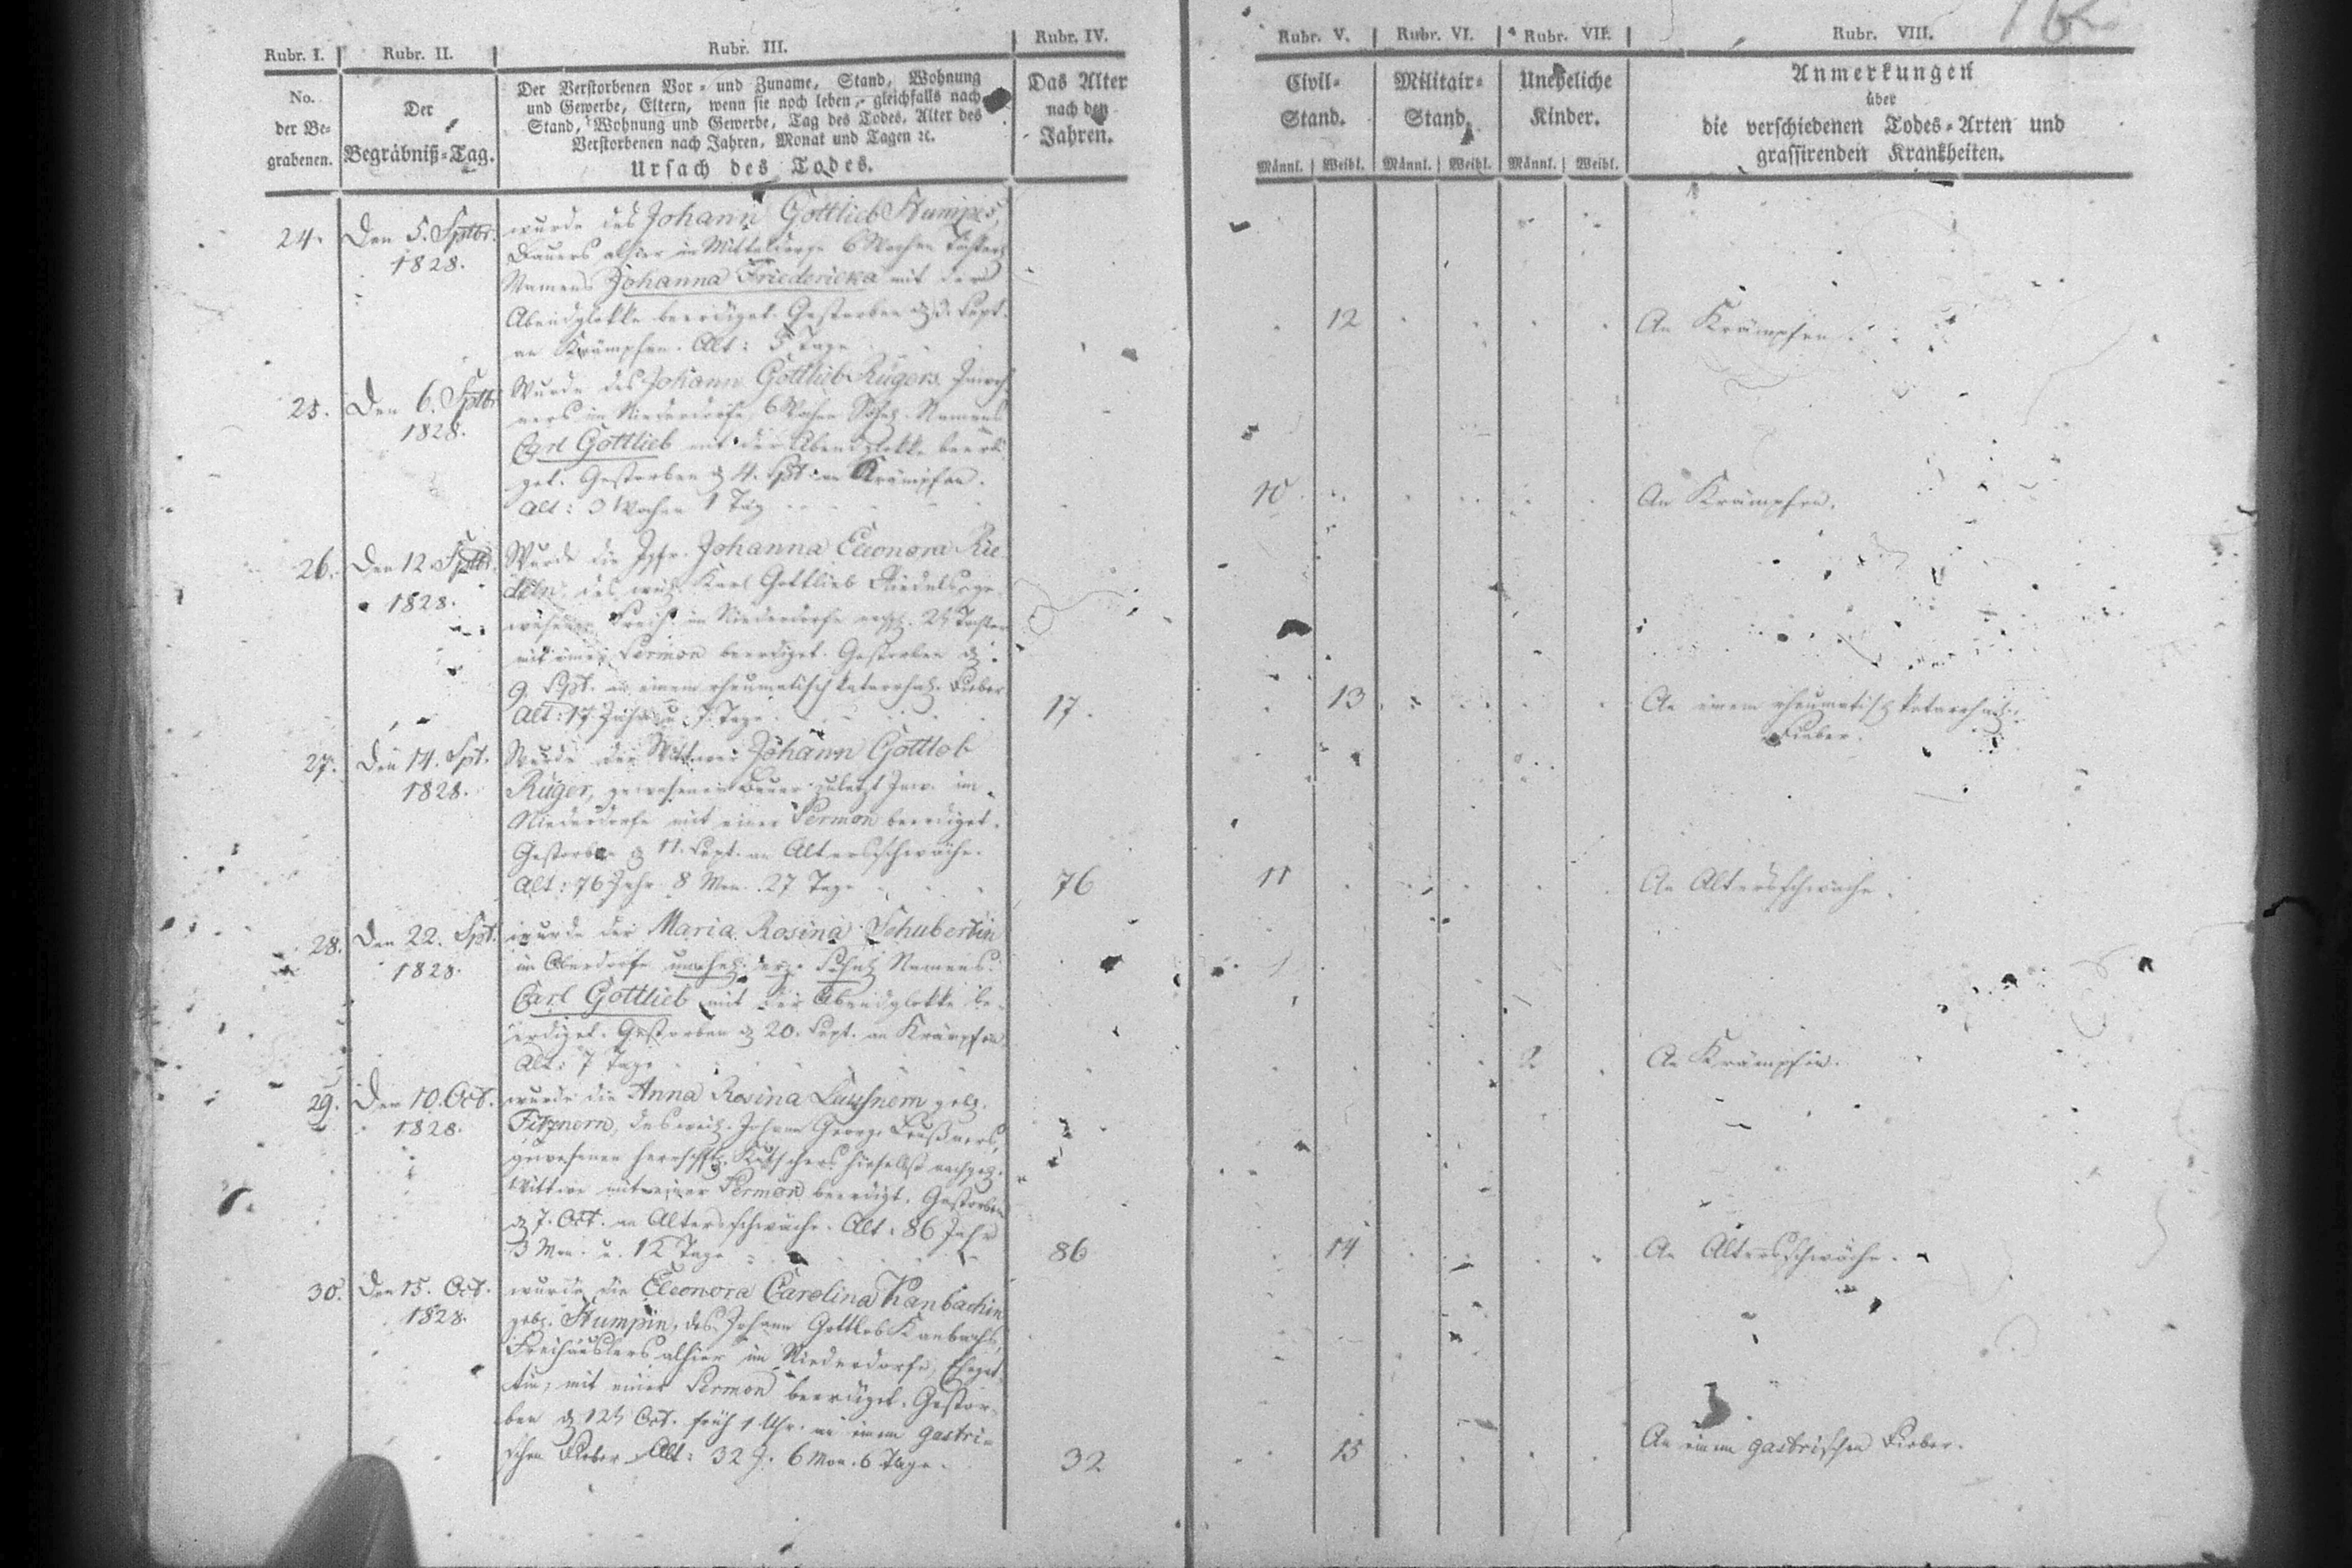 162
Rubr. I. Rubr. II. Rubr. III. Rubr. IV. Rubr. V. Rubr. VI. Rubr. VII. Rubr. VIII.
No.
der Be-
grabenen.
Der
Begräbniß-Tag.
Der Verstorbenen Vor- und Zuname, Stand, Wohnung
und Gewerbe, Eltern, wenn sie noch leben, gleichfalls nach
Stand, Wohnung und Gewerbe, Tag des Todes, Alter des
Verstorbenen nach Jahren, Monat und Tagen ꝛc.
Ursach des Todes.
Das Alter
nach den
Jahren.
Civil-
Stand.
Männl. Weibl.
Militair-
Stand.
Männl. Weibl.
Uneheliche
Kinder.
Männl. Weibl.
Anmerkungen
über
die verschiedenen Todes-Arten und
grassirenden Krankheiten.
24. Den 5. Sptbr. 1828.
wurde des Johann Gottlieb Stumpes,
Bauers alhier im Mitteldorfe
Namens Johanna Friedericka mit der
Abendglokke beerdiget. Gestorben d. 3. Sept.
an Krämpfen. Alt: 5 Tage
12 An Krämpfen.
25. Den 6. Sptbr. 1828.
Wurde des Johann Gottlieb Rügers, Inwoh-
ners im Niederdorfe, Namens
Carl Gottlieb mit der Abendglokke beerdi-
get. Gestorben d. 4. Spt. an Krämpfen.
Alt: 3 Wochen 1 Tag
10 An Krämpfen.
26. Den 12. Sptbr. 1828.
Wurde die Jgfr. Johanna Eleonora Rie-
deln, des weil. Karl Gottlieb Riedels, ge-
wesenen im Niederdorfe 2t. Tochter
mit einer Sermon beerdiget. Gestorben d.
9. Spt. an einem rheumatisch katarrhal. Fieber
Alt: 17 Jahr u. 7 Tage
17. 13 An einem rheumatisch katarrhal.
Fieber.
27. Den 14. Spt. 1828.
Wurde der Wittwer Johann Gottlob
Rüger, gewesener Bauer zuletzt Inw. im
Niederdorfe mit einer Sermon beerdiget.
Gestorben d. 11. Sept. an Altersschwäche.
Alt: 76 Jahr 8 Mon. 27 Tage
76 11 An Altersschwäche.
28. Den 22. Spt. 1828.
wurde der Maria Rosina Schubertin
im Oberdorfe Namens
Carl Gottlieb mit der Abendglokke be-
erdiget. Gestorben d. 20. Sept. an Krämpfen
Alt: 7 Tage
2 An Krämpfen.
29. Den 10. Oct. 1828.
wurde die Anna Rosina geb.
des weil. Johann George
gewesenen herrschftl. Kutschers hieselbst nachgel.
Wittwe mit einer Sermon beerdigt. Gestorben
d. 7. Oct. an Altersschwäche. Alt: 86 Jahr
3 Mon. u. 12 Tage
86 14 An Altersschwäche.
30. Den 15. Oct. 1828.
wurde die Eleonora Carolina Kanbachin
geb. Stumpin, des Johann Gottlob Kanbachs,
Freihäuslers alhier im Niederdorfe, Ehegat-
tin, mit einer Sermon beerdiget. Gestor-
ben d. 12t. Oct. früh 1 Uhr. an einem gastri-
schen Fieber. Alt: 32 J. 6 Mon. 6 Tage.
32 15 An einem gastrischen Fieber.